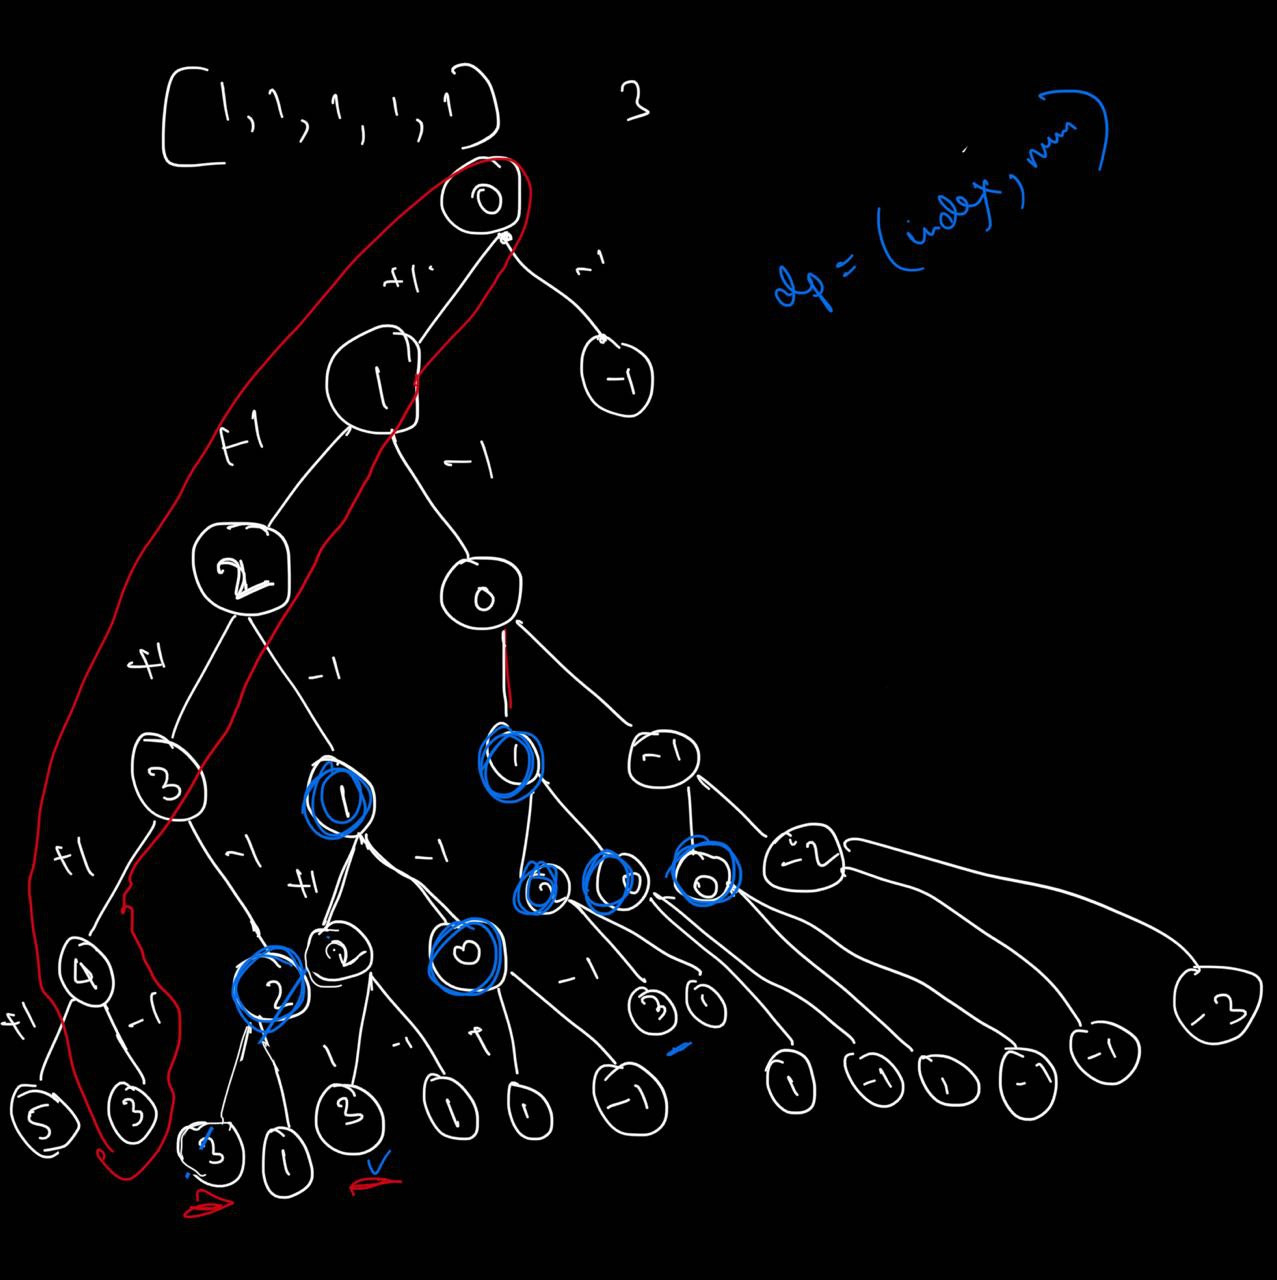 [1, 1, 1, 1, 1] 3
dp = (index, num)
0
+1 -1
1 -1
+1 -1
2 0
+1 -1
3 1 1 -1
+1 -1 +1 -1
4 2 2 0 2 0 0 -2
+1 -1 1 -1 1 -1
5 3 3 1 3 1 1 -1 3 1 1 -1 1 -1 -1 -3